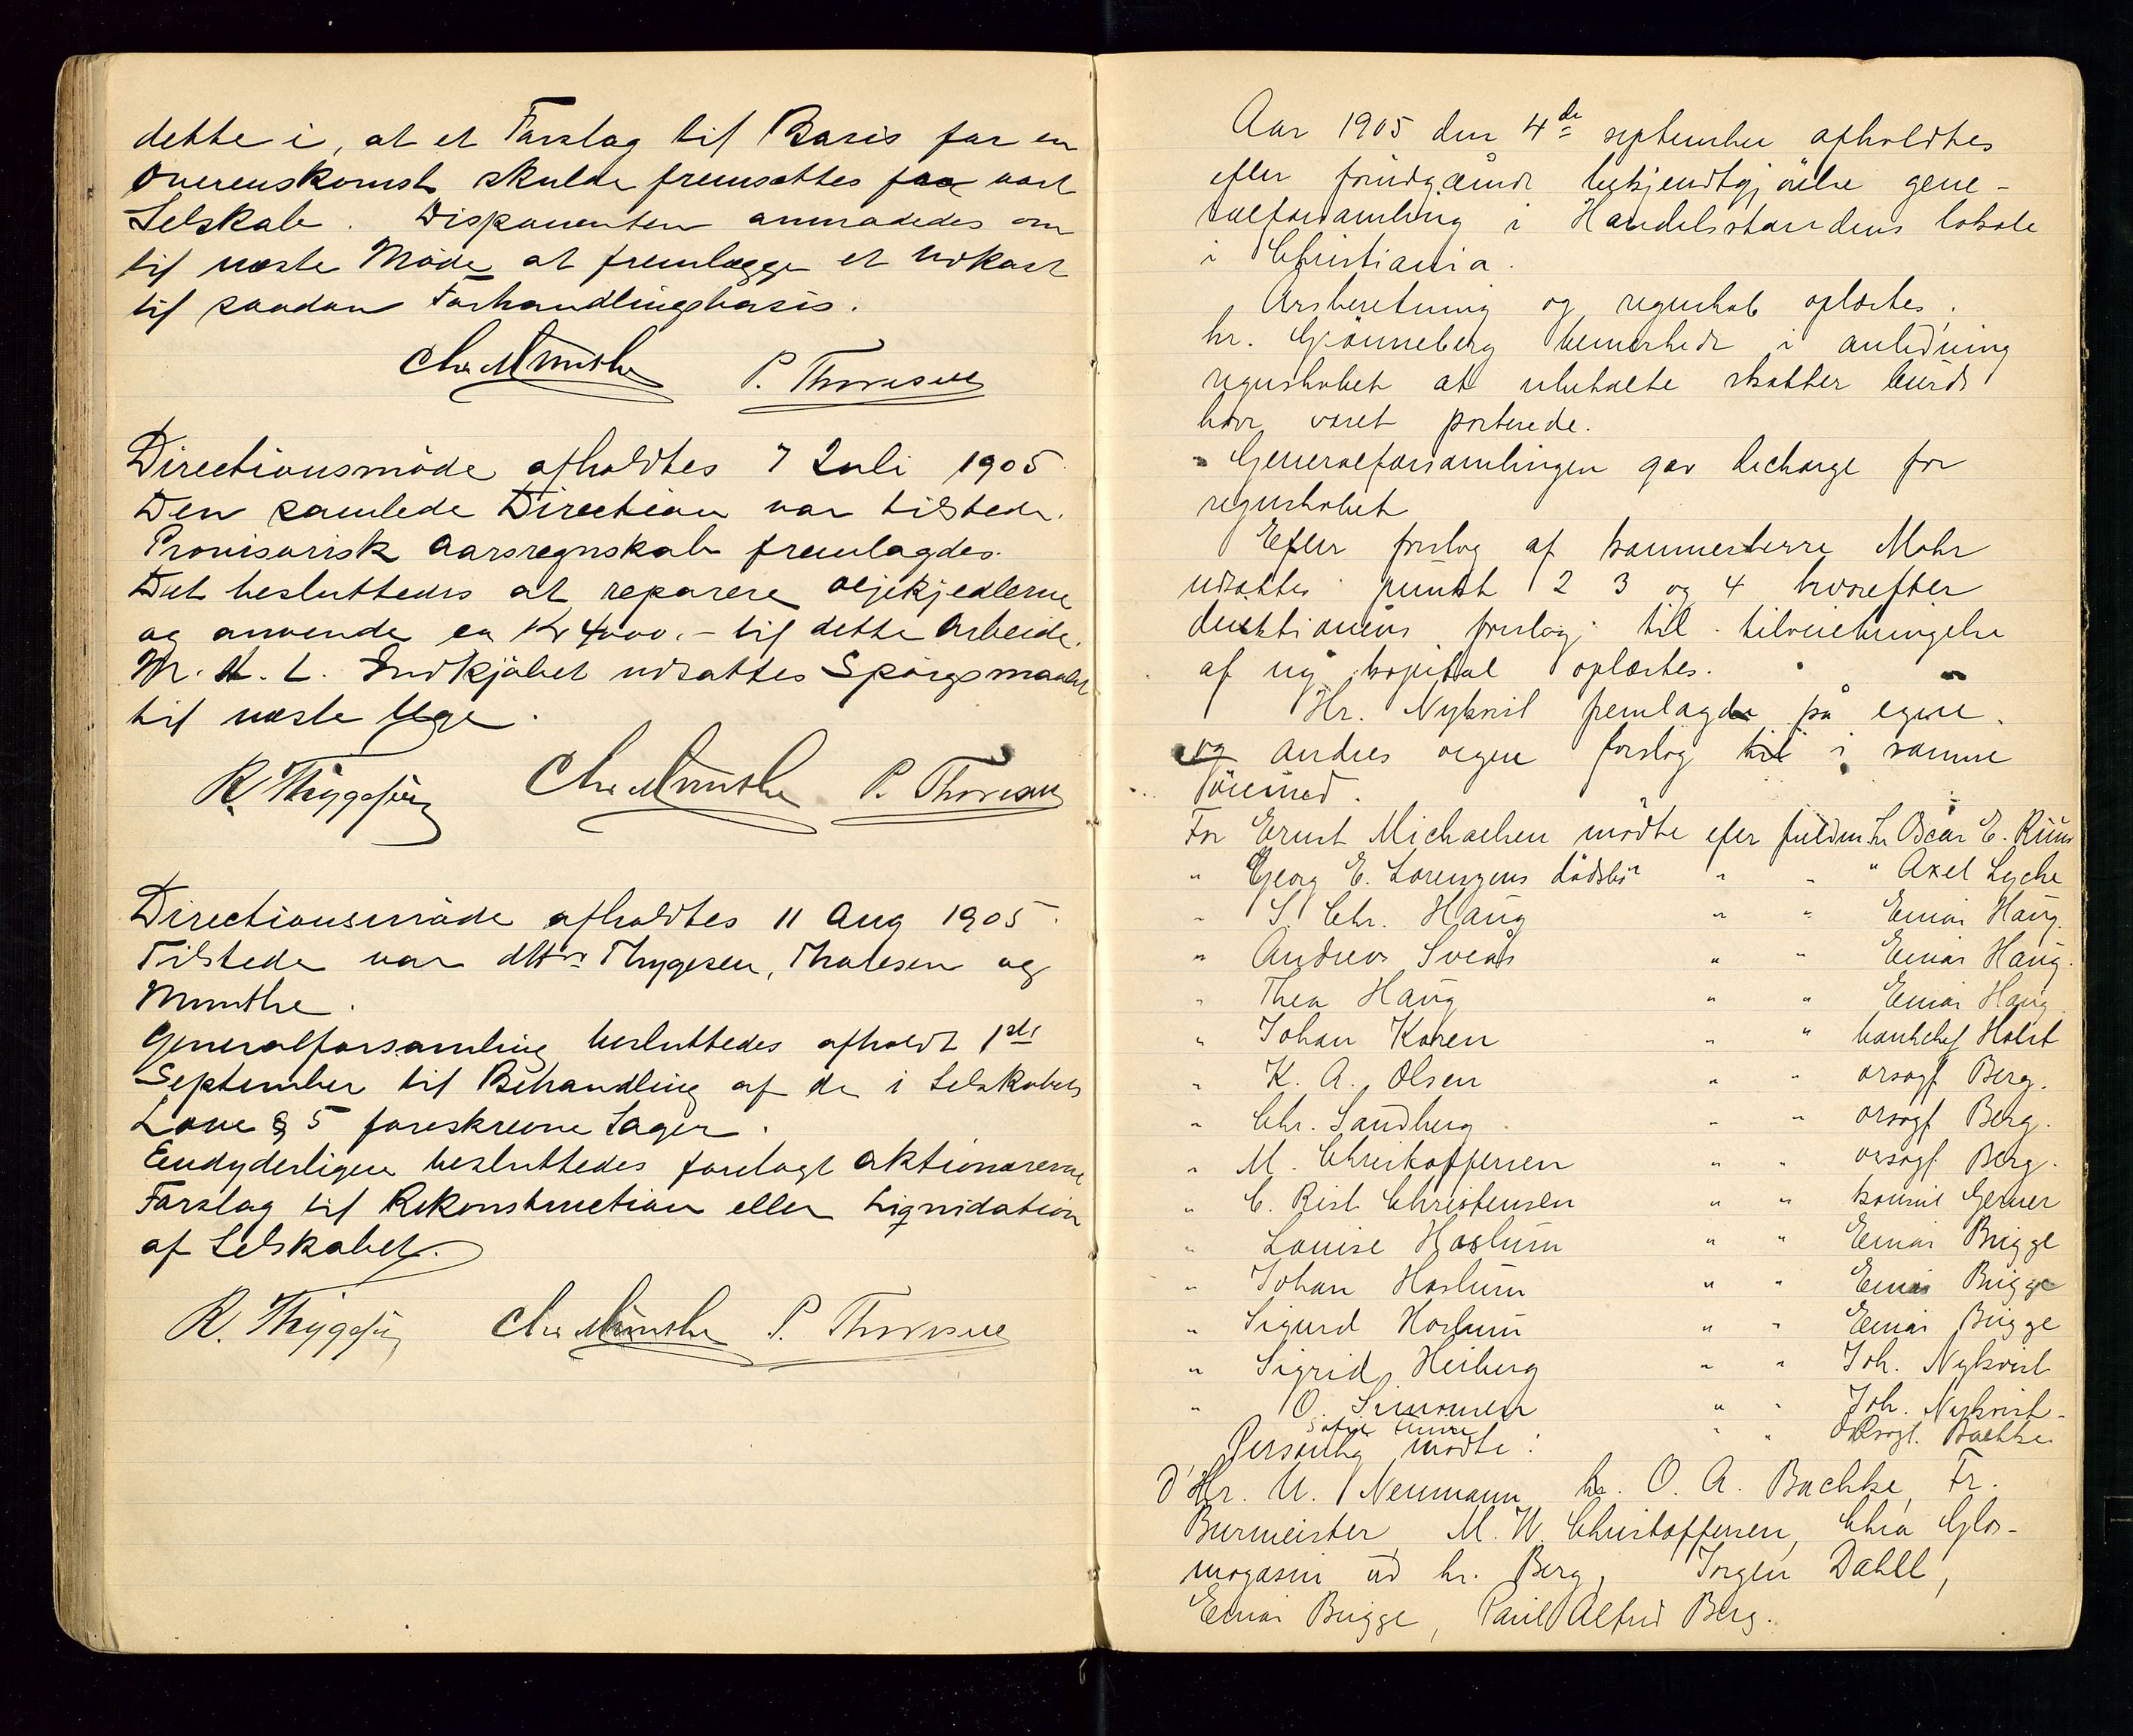 dette i, at et Forslag til Basis for en
Overenskomst skulde fremsættes fra vort
Selskab. Disponenten anmodedes om
til næste Møde at fremlægge et Udkast
til saadan Forhandlingsbasis.
Chr Munthe P. Thoresen
Directionsmöde afholdtes 7 Juli 1905
Den samlede Direction var tilstede.
Provisorisk Aarsregnskab fremlagdes.
Det besluttedes at reparere Oljekjedlerne
og anvende ca Kr 4000.- til dette Arbeide.
M. A. L. Indkjøbet udsattes Spørgsmaalet
til næste Uge.
R. Thygesen Chr Munthe P. Thoresen
Directionsmöde afholdtes 11 Aug 1905
Tilstede var dHrr Thygesen, Thoresen og
Munthe.
Generalforsamling besluttedes afholdt 1ste
September til Behandling af de i Selskabets
Love § 5 foreskrevne Sager.
Endyderligere besluttedes forelagt Aktionærerne
Forslag til Rekonstruction eller Liqnidation
af Selskabet.
R. Thygesen Chr Munthe P. Thoresen
Aar 1905 den 4de september afholdtes
efter forudgående bekjendtgjörelse gene-
ralforsamling i Handelsstandens lokale
i Christiania.
Årsberetning og regnskab oplæstes.
hr. Grönneberg bemerkede i anledning
regnskabet at ubetalte skatter burde
have været posterede.
Generalforsamlingen gav decharge for
regnskabet
Efter forslag af kammerherre Mohr
udsattes punkt 2 3 og 4 hvorefter
direktionens forslag til tilveiebringelse
af ny kapital oplæstes.
Hr. Nykvist fremlagde på egne
og andres vegne forslag i samme
öiemed.
For Ernst Michaelsen mödte efter fuldm. hr Oscar E. Ruus
" Georg E. Lorenzens dödsbo " " " Axel Lyche
" S. Chr. Haug " " Einar Haug.
" Andreas Sveås " " Einar Haug.
" Thea Haug " " Einar Haug
" Johan Koren " " bankchef Holst
" K. A. Olsen " " orsagf. Berg.
" Chr. Sandberg " " orsagf. Berg.
" M. Christoffersen " " orsagf. Berg.
" C. Rist Christensen " " konsul Gerner
" Louise Haslum " " Einar Brigge
" Johan Haslum " " Einar Brigge
" Sigurd Haslum " " Einar Brigge
" Sigrid Heiberg " " Joh. Nykvist
" O. Simonsen " " Joh. Nykvist.
" " Bachke.
Personlig mödte:
d'Hr. U. Neumann, hr. O. A. Bachke, Fr.
Burmeister, M. W. Christoffersen, Chra Glas-
magasin ved hr. Berg, Jørgen Dahll,
Einar Brigge, Paul Alfred Berg.